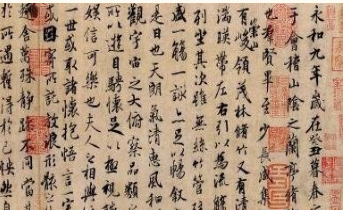 永和九年歲在癸丑暮春
于會稽山陰之蘭亭
也羣賢畢至少長咸集
有崇山峻領茂林脩竹又有清
湍暎帶左右引以為流觴
列坐其次雖無絲竹管弦
盛一觴一詠亦足以暢敘
是日也天朗氣清惠風和
觀宇宙之大俯察品類
所以遊目騁懷足以極視聽
娛信可樂也夫人之相與
一世或取諸懷抱悟言一
或因寄所託放浪形骸
趣舍萬殊靜躁不同當
於所遇暫得於己怏然自